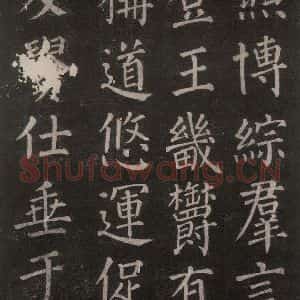 博綜羣言
登王畿欝有
道悠運促
仕垂于
Shufawang.CN